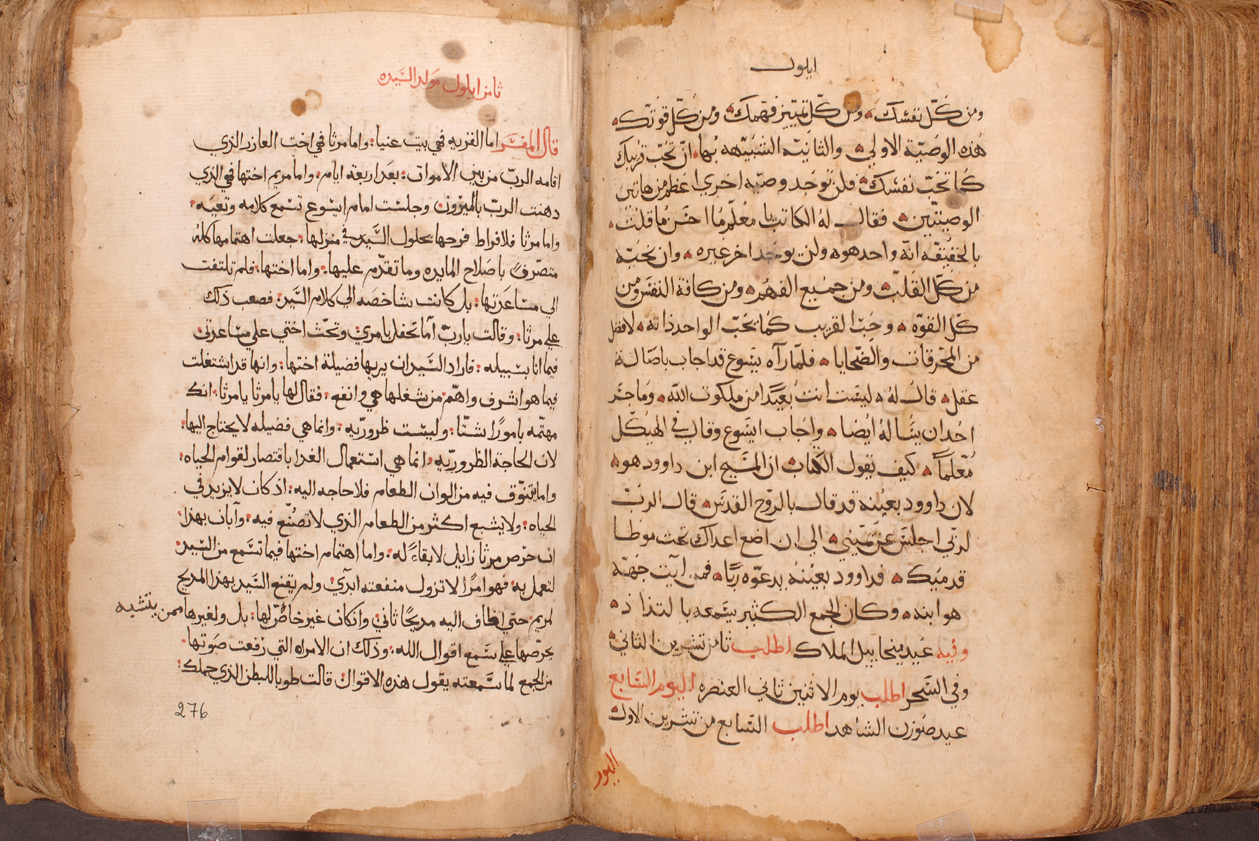 ايلول
ومن كل نفسك ومن كل تمييز فهمك ومن كل قوتك
هذه الوصية الاولى والثانية الشبيهه بها ان تحب قريبك
كما تحب نفسك فلن توجد وصيه اخري اعظم من هاتين
الوصيتين فقال له الكاتب يا معلم ما احسن ما قلت
بالحقيقة انه واحد هو ولن يوجد اخر غيره وان تحبه
من كل القلب ومن جميع الفهم ومن كافة النفس ومن
كل القوه وحب القريب كما تحب الواحد ذاته لافضل
من المحرقات والضحايا فلما رآه يسوع قد اجاب باصالة
عقل قال له ليست انت بعيدا من ملكوت الله وما جسر
احد ان يسأله ايضا واجاب ايسوع وقال في الهيكل
معلما كيف تقول الكتاب ان المسيح ابن داوود هو
لان داوود بعينه قد قال بالروح القدس قال الرب
لربي اجلس عن يميني الي ان اضع اعداك تحت موطا
قدميك فداوود بعينه يدعوه ربا فمن آيت جهة
هو ابنه وكان الجمع الكثير يسمعه بالتذاذ
وفيه عيد ميخاييل الملاك اطلب ثامن تشرين الثاني
وفي السحر اطلب يوم الاثنين ثاني العنصره اليوم السابع
عيد صوزن الشاهد اطلب السابع من تشرين الاول
اليوم
ثامن ايلول مولد السيده
قال المفسر اما القريه في بيت عنيا واما مرثا في اخت العازر الذي
اقامه الرب من بين الاموات بعد اربعة ايام واما مريم اختها في الذي
دهنت الرب بالميرون وجلست امام ايسوع تسمع كلامه وتعيه
واما مرثا فلافراط فرحها بحلول السيد في منزلها جعلت اهتمامها كله
متصرف باصلاح المايده وما تقدم عليها واما اختها فلم تلتفت
الي مساعدتها بل كانت شاخصه الي كلام السيد فصعب ذلك
علي مرثا وقالت يا رب اما تحفل بامري وتحث اختي علي مساعدتي
فيما انا بسبيله فاراد السيد ان يريها فضيلة اختها وانها قد اشتغلت
فيما هو اشرف واهم من شغلها هي وانفع فقال لها يا مرثا يا مرثا انك
مهتمه بامورا شتا وليست ظروريه وانما هي فضيله لا يحتاج اليها
لان الحاجة الظروريه انما هي استعمال الغذا باقتصار لقوام الحياه
واما يتنوق فيه من الوان الطعام فلا حاجه اليه اذ كان لا يزيد في
الحياه ولا يشبع اكثر من الطعام الذي لا تصنع فيه وآبان بهذا
ان حرص مرثا زايل لا بقاء له واما اهتمام اختها فيما تسمع من السيد
لتعمل به فهو امرا لا تزول منفعته ابدآ ولم يقنع السيد بهذا المديح
لمريم حتي اظاف اليه مديحا ثاني وان كان غير خاص لها بل ولغيرها ممن يتشبه
بحرصها علي سمع اقوال الله وذلك ان الامراه التي رفعت صوتها
من الجمع لما سمعته يقول هذه الاقوال قالت طوبا للبطن الذي حملك
276